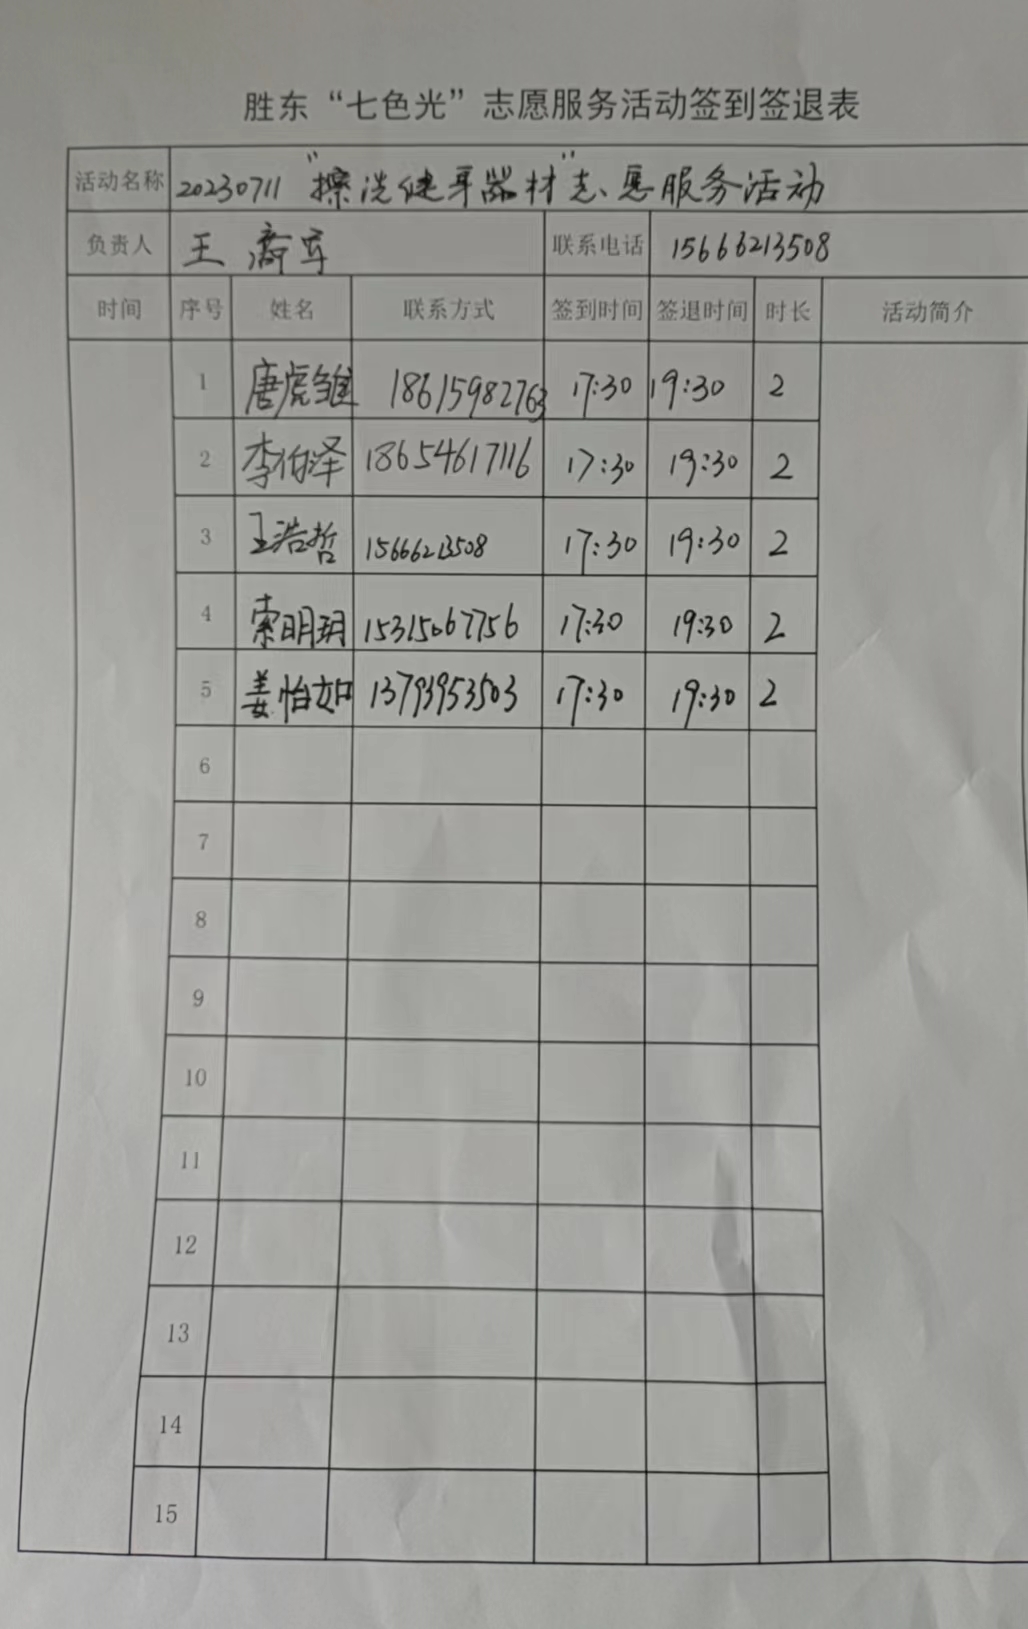 胜东“七色光”志愿服务活动签到签退表
活动名称 20230711 “擦洗健身器材”志愿服务活动
负责人 王 联系电话 15666213508
时间 序号 姓名 联系方式 签到时间 签退时间 时长 活动简介
1 唐虎雏 18615982763 17:30 19:30 2
2 李伯泽 18654617116 17:30 19:30 2
3 王浩哲 15666213508 17:30 19:30 2
4 索明玥 15315067756 17:30 19:30 2
5 姜怡如 13793953503 17:30 19:30 2
6
7
8
9
10
11
12
13
14
15